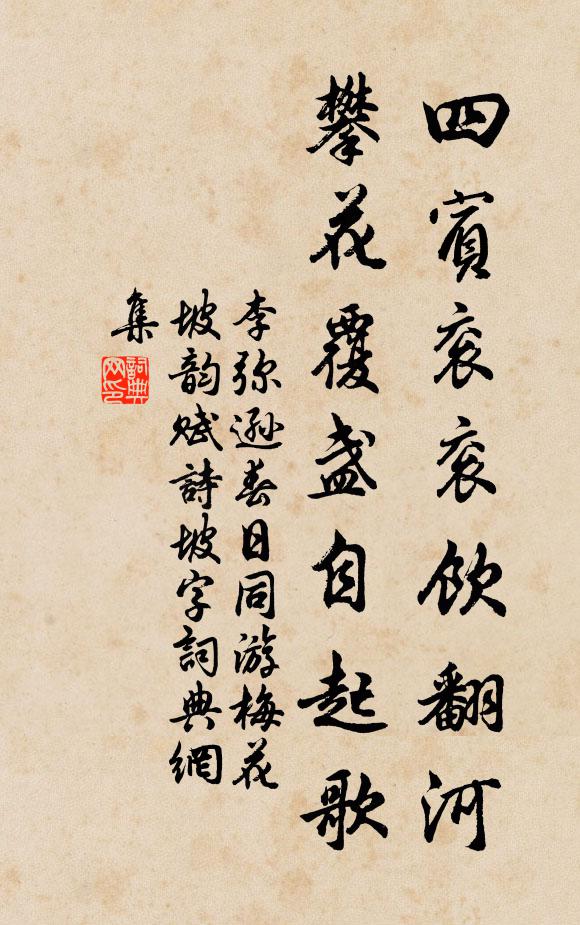 四賓衮衮飲翻河
攀花覆盞自起歌
李弥遜春日同游梅花
坡韵賦詩坡字詞典網
集
詞典網印